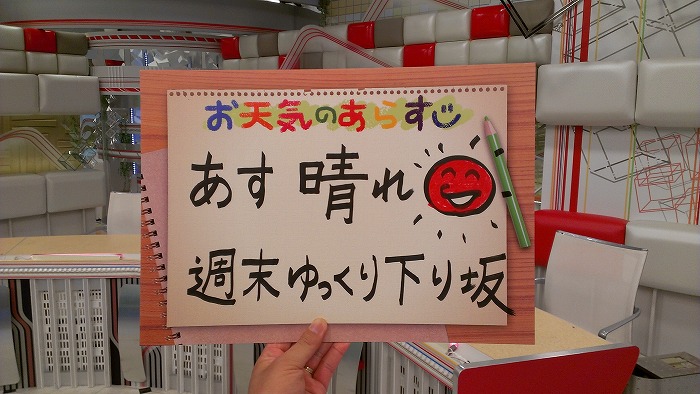 お天気のあらすじ
あす 晴れ
週末ゆっくり下り坂